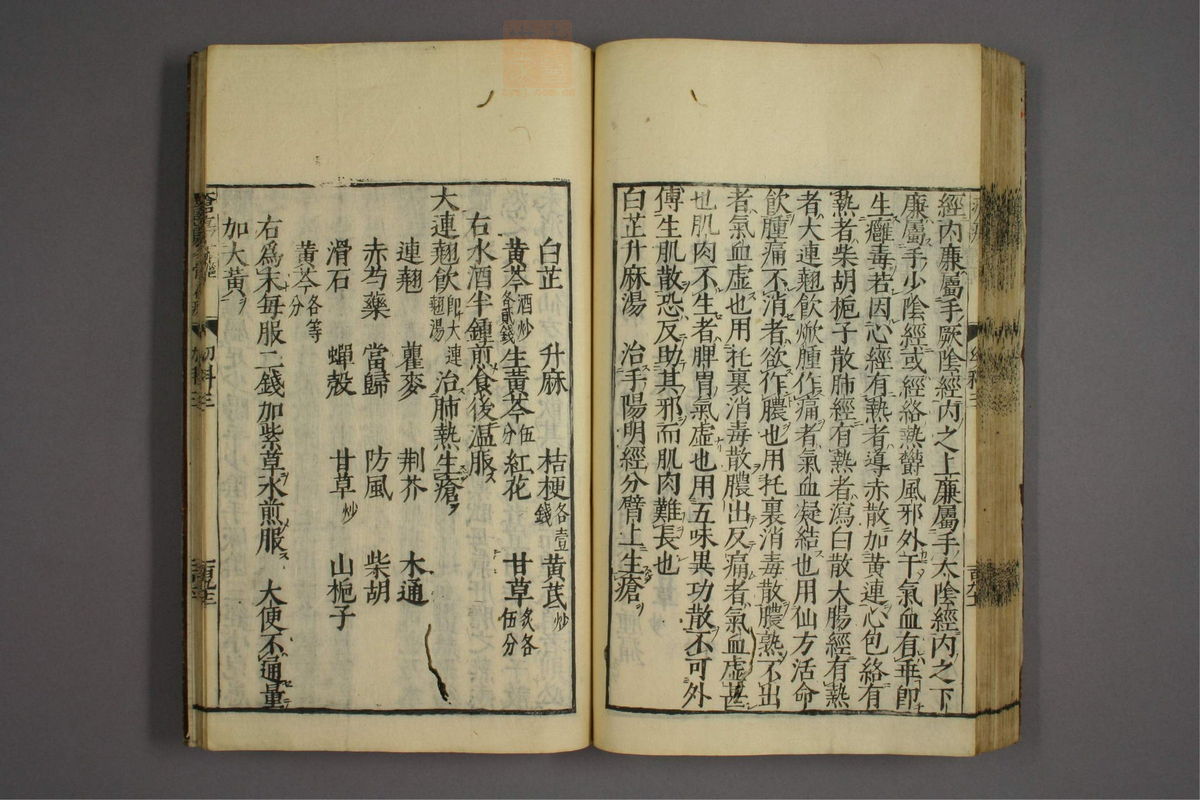 經內廉屬手厥陰經內之上廉屬手太陰經內之下
廉屬手少陰經或經絡熱欝風邪外干氣血有乖即
生癰毒若因心經有熱者導赤散加黄連心包絡有
熱者柴胡梔子散肺經有熱者瀉白散大腸經有熱
者大連翹飲焮腫作痛者氣血凝結也用仙方活命
飲腫痛不消者欲作膿也用托裏消毒散膿熟不出
者氣血虛也用托裏消毒散膿出反痛者氣血虛甚
也肌肉不生者脾胃氣虛也用五味異功散不可外
傅生肌散恐反助其邪而肌肉難長也
白芷升麻湯 治手陽明經分臂上生瘡ヲ
白芷 升麻 桔梗各壹錢 黄芪炒
黄芩酒炒各貳錢 生黄芩伍分 紅花 甘草炙各伍分
右水酒半鍾煎食後温服ス
大連翹飲即大連翹湯 治肺熱生瘡ヲ
連翹 瞿麥 荆芥 木通
赤芍藥 當歸 防風 柴胡
滑石 蟬殼 甘草炒 山梔子
黄芩各等分
右爲末每服二錢加紫草水煎服 大便不通量
加大黄ヲ
幼科三